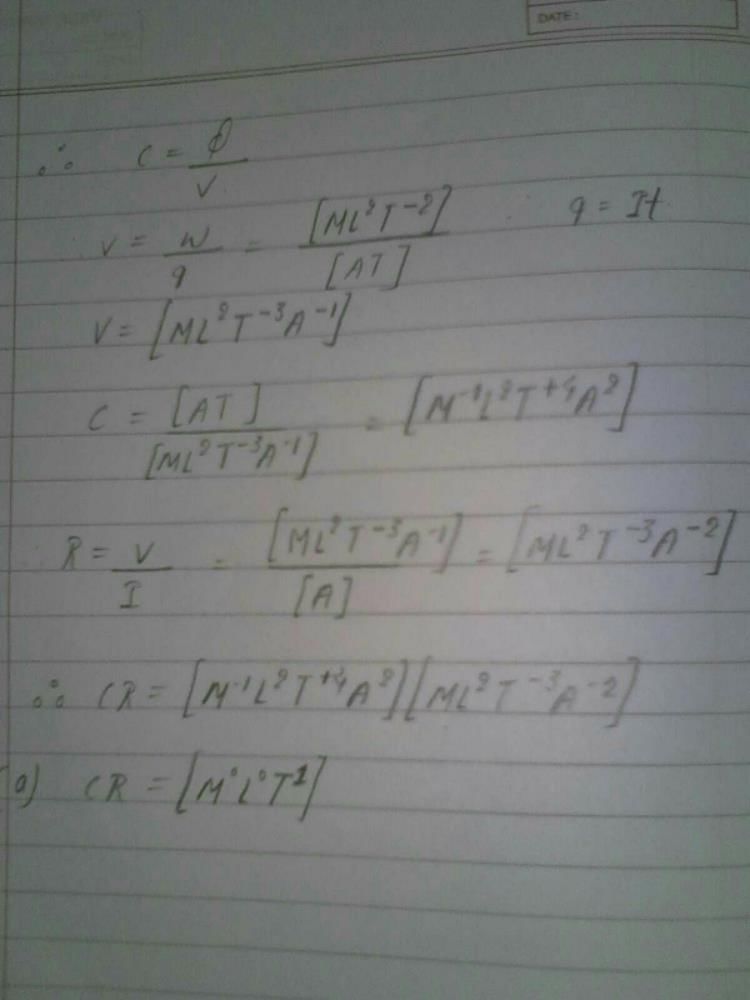 DATE:
∴ C = Q/V
V = W/q = [ML²T⁻²]/[AT] q = It
V = [ML²T⁻³A⁻¹]
C = [AT]/[ML²T⁻³A⁻¹] = [M⁻¹L²T⁺⁴A²]
R = V/I = [ML²T⁻³A⁻¹]/[A] = [ML²T⁻³A⁻²]
∴ CR = [M⁻¹L²T⁺⁴A²][ML²T⁻³A⁻²]
(a) CR = [M⁰L⁰T¹]